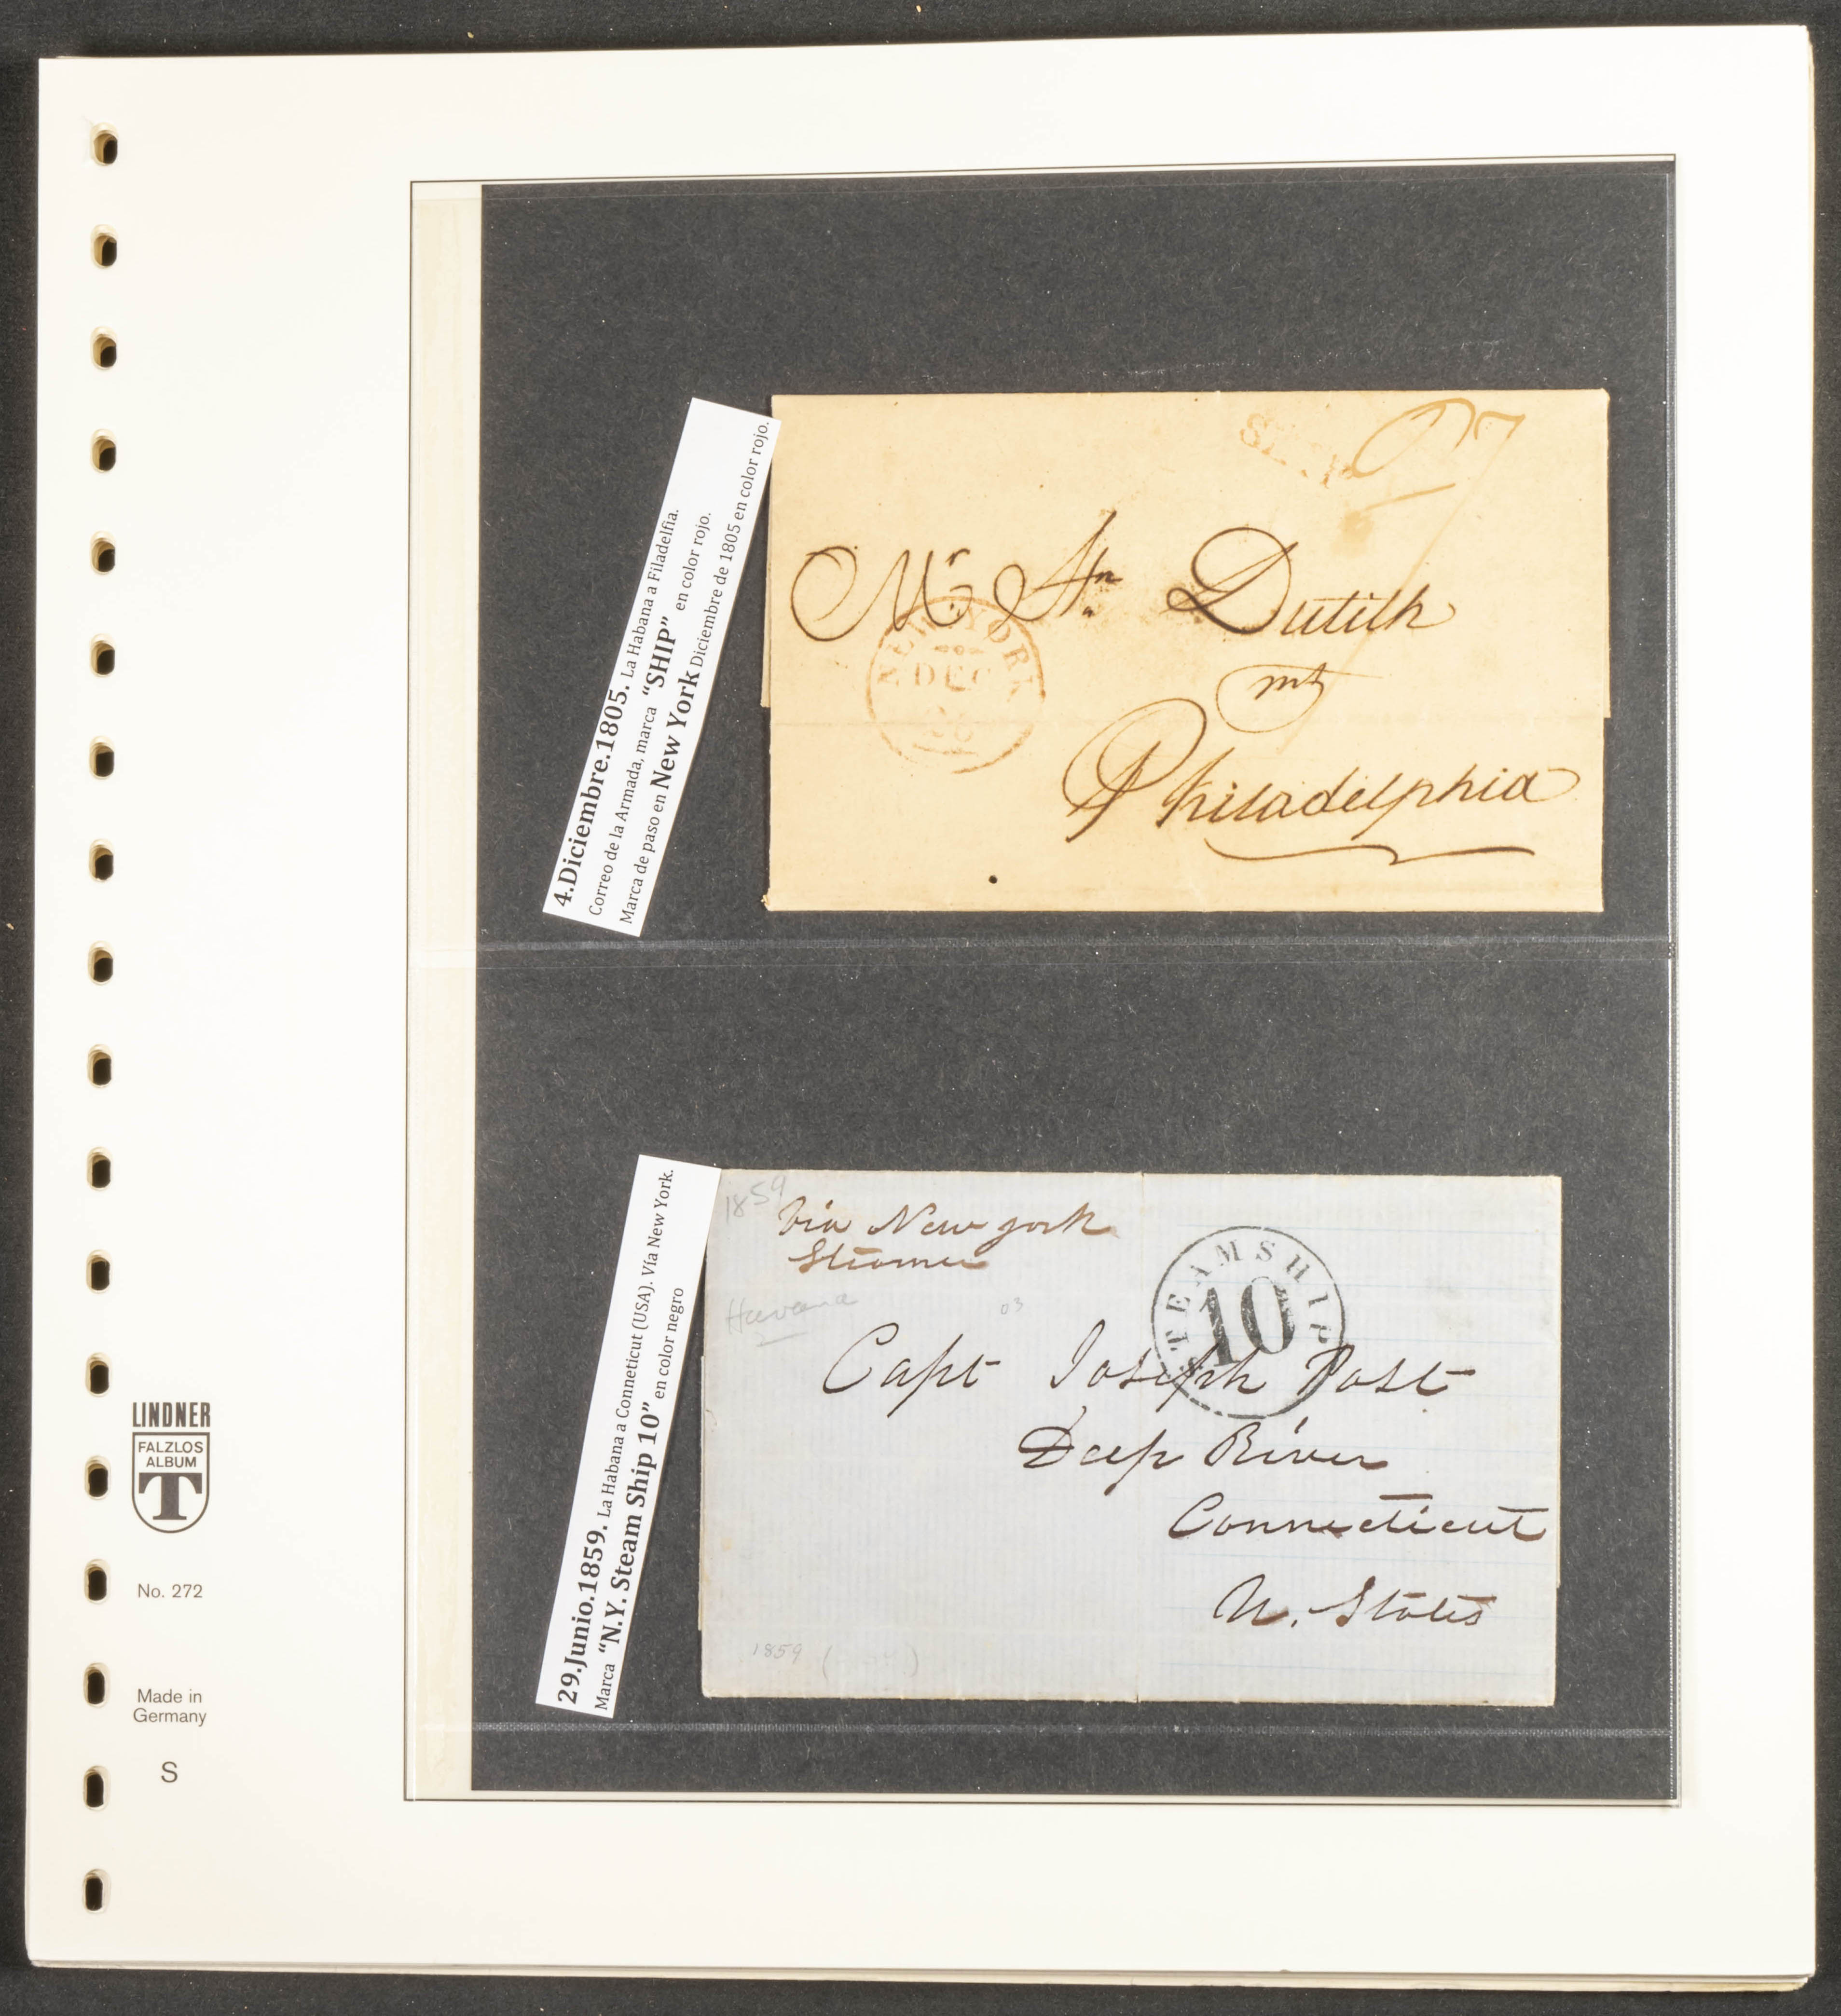 4.Diciembre.1805. La Habana a Filadelfia.
Correo de la Armada, marca “SHIP” en color rojo.
Marca de paso en New York Diciembre de 1805 en color rojo.
27
Mr. Sn. Dutilh
mt
Philadelphia
NEW YORK
DEC
29.Junio.1859. La Habana a Conneticut (USA). Vía New York.
Marca “N.Y. Steam Ship 10” en color negro
1859
Via New york
Steamer
Havana
03
STEAMSHIP
10
Capt Joseph Post
Deep River
Connecticut
U. States
1859
LINDNER
FALZLOS
ALBUM
T
No. 272
Made in
Germany
S